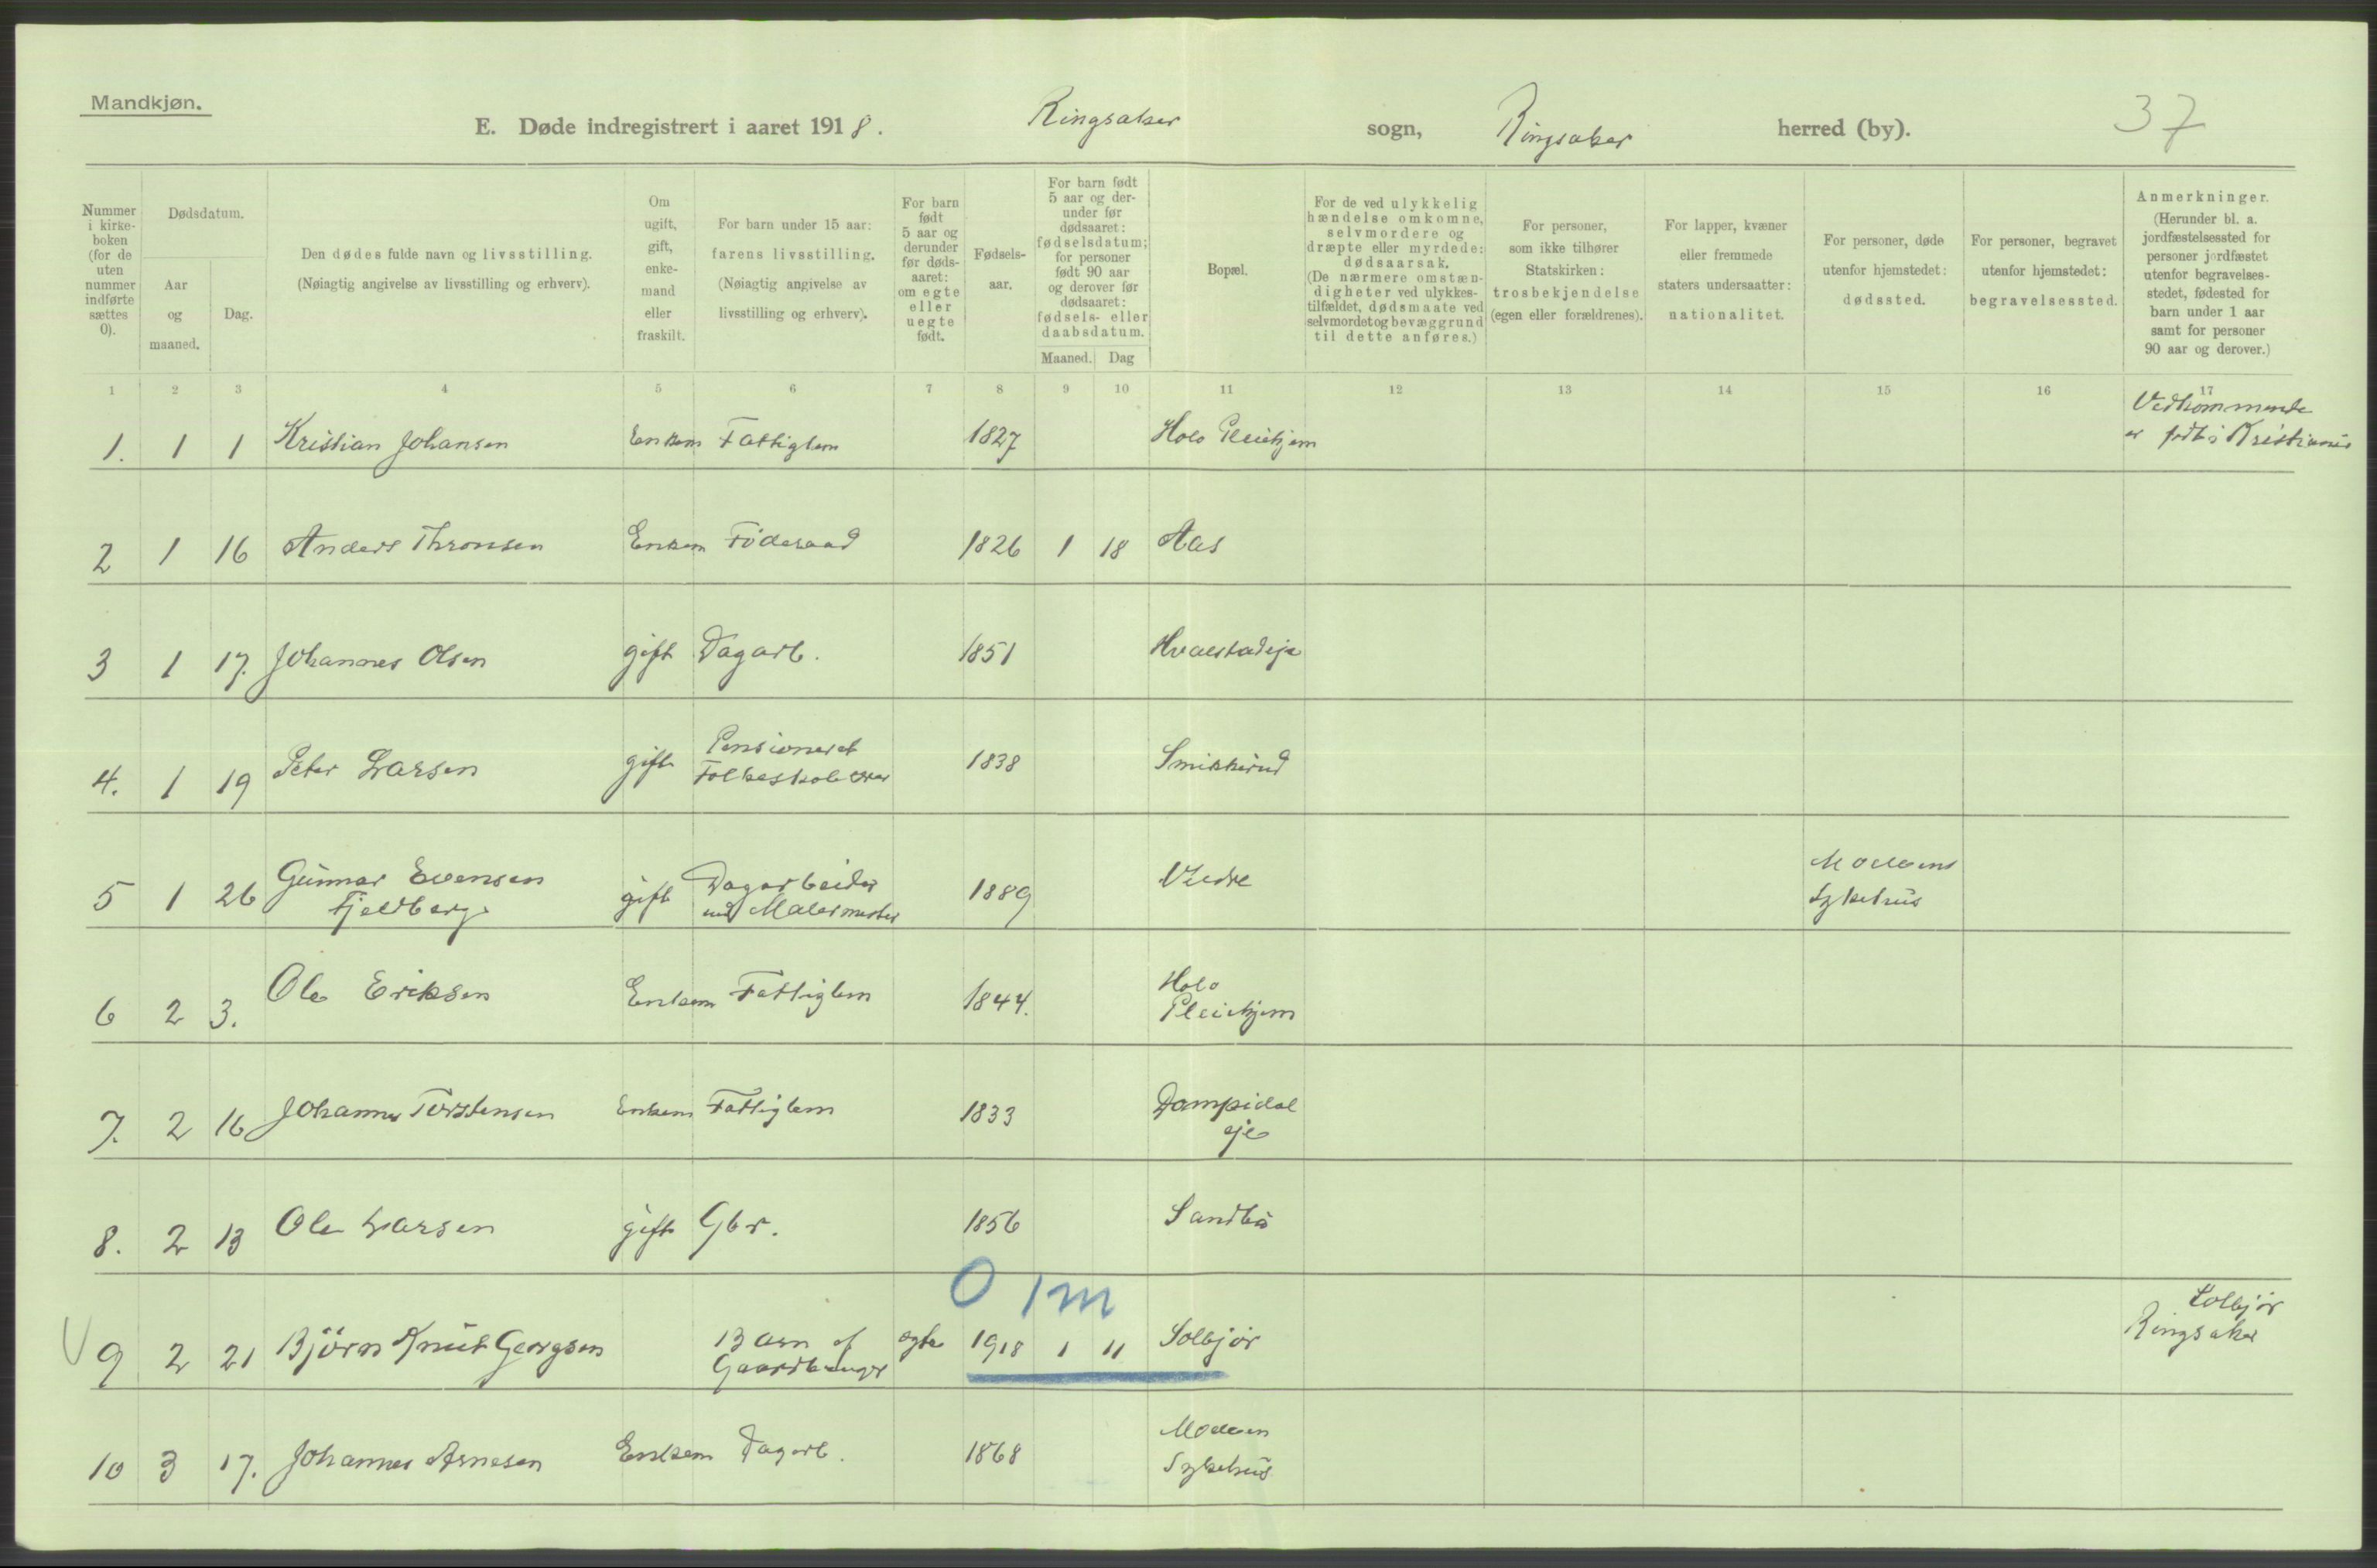 Mandkjøn.
E. Døde indregistrert i aaret 1918. Ringsaker sogn, Ringsaker herred (by). 37
Nummer i kirke-boken (for de uten nummer indførte sættes 0).
Dødsdatum.
Aar og maaned.
Dag.
Den dødes fulde navn og livsstilling.
(Nøiagtig angivelse av livsstilling og erhverv).
Om ugift, gift, enke-mand eller fraskilt.
For barn under 15 aar: farens livsstilling.
(Nøiagtig angivelse av livsstilling og erhverv).
For barn født 5 aar og derunder før døds-aaret: om egte eller uegte født.
Fødsels-aar.
For barn født 5 aar og der-under før dødsaaret: fødselsdatum; for personer født 90 aar og derover før dødsaaret: fødsels- eller daabsdatum.
Maaned. Dag
Bopæl.
For de ved ulykkelig hændelse omkomne, selvmordere og dræpte eller myrdede: dødsaarsak.
(De nærmere omstæn-digheter ved ulykkes-tilfældet, dødsmaate ved selvmordet og bevæggrund til dette anføres.)
For personer, som ikke tilhører Statskirken: trosbekjendelse (egen eller forældrenes).
For lapper, kvæner eller fremmede staters undersaatter: nationalitet.
For personer, døde utenfor hjemstedet: dødssted.
For personer, begravet utenfor hjemstedet: begravelsessted.
Anmerkninger.
(Herunder bl. a. jordfæstelsessted for personer jordfæstet utenfor begravelses-stedet, fødested for barn under 1 aar samt for personer 90 aar og derover.)
1 2 3 4 5 6 7 8 9 10 11 12 13 14 15 16 17
1. 1 1 Kristian Johansen Enkem Fattiglem 1827 Holo Pleiehjem Vedkommende
er født i Kristiania
2 1 16 Anders Thronsen Enkem Föderaad 1826 1 18 Aas
3 1 17. Johannes Olsen gift Dagarb. 1851 Hvalstadeje
4. 1 19 Peter Larsen gift Pensioneret
Folkeskolelærer 1838 Smikkerud
5 1 26 Gunnar Evensen
Fjeldberg gift Dagarbeider
ved Malermester 1889 Moelvens
Sykehus
6 2 3. Ole Eriksen Enkem Fattiglem 1844. Holo
Pleiehjem
7. 2 16 Johannes Torstensen Enkem Fattiglem 1833 Dampidal
eje
8. 2 13 Ole Larsen gift Gbr. 1856 Sandbö
0 1m
9 2 21 Björn Knut Georgsen Barn af
Gaardbruger egte 1918 1 11 Solbjör Solbjör
Ringsaker
10 3 17. Johannes Arnesen Enkem Dagarb. 1868 Moelven
Sykehus